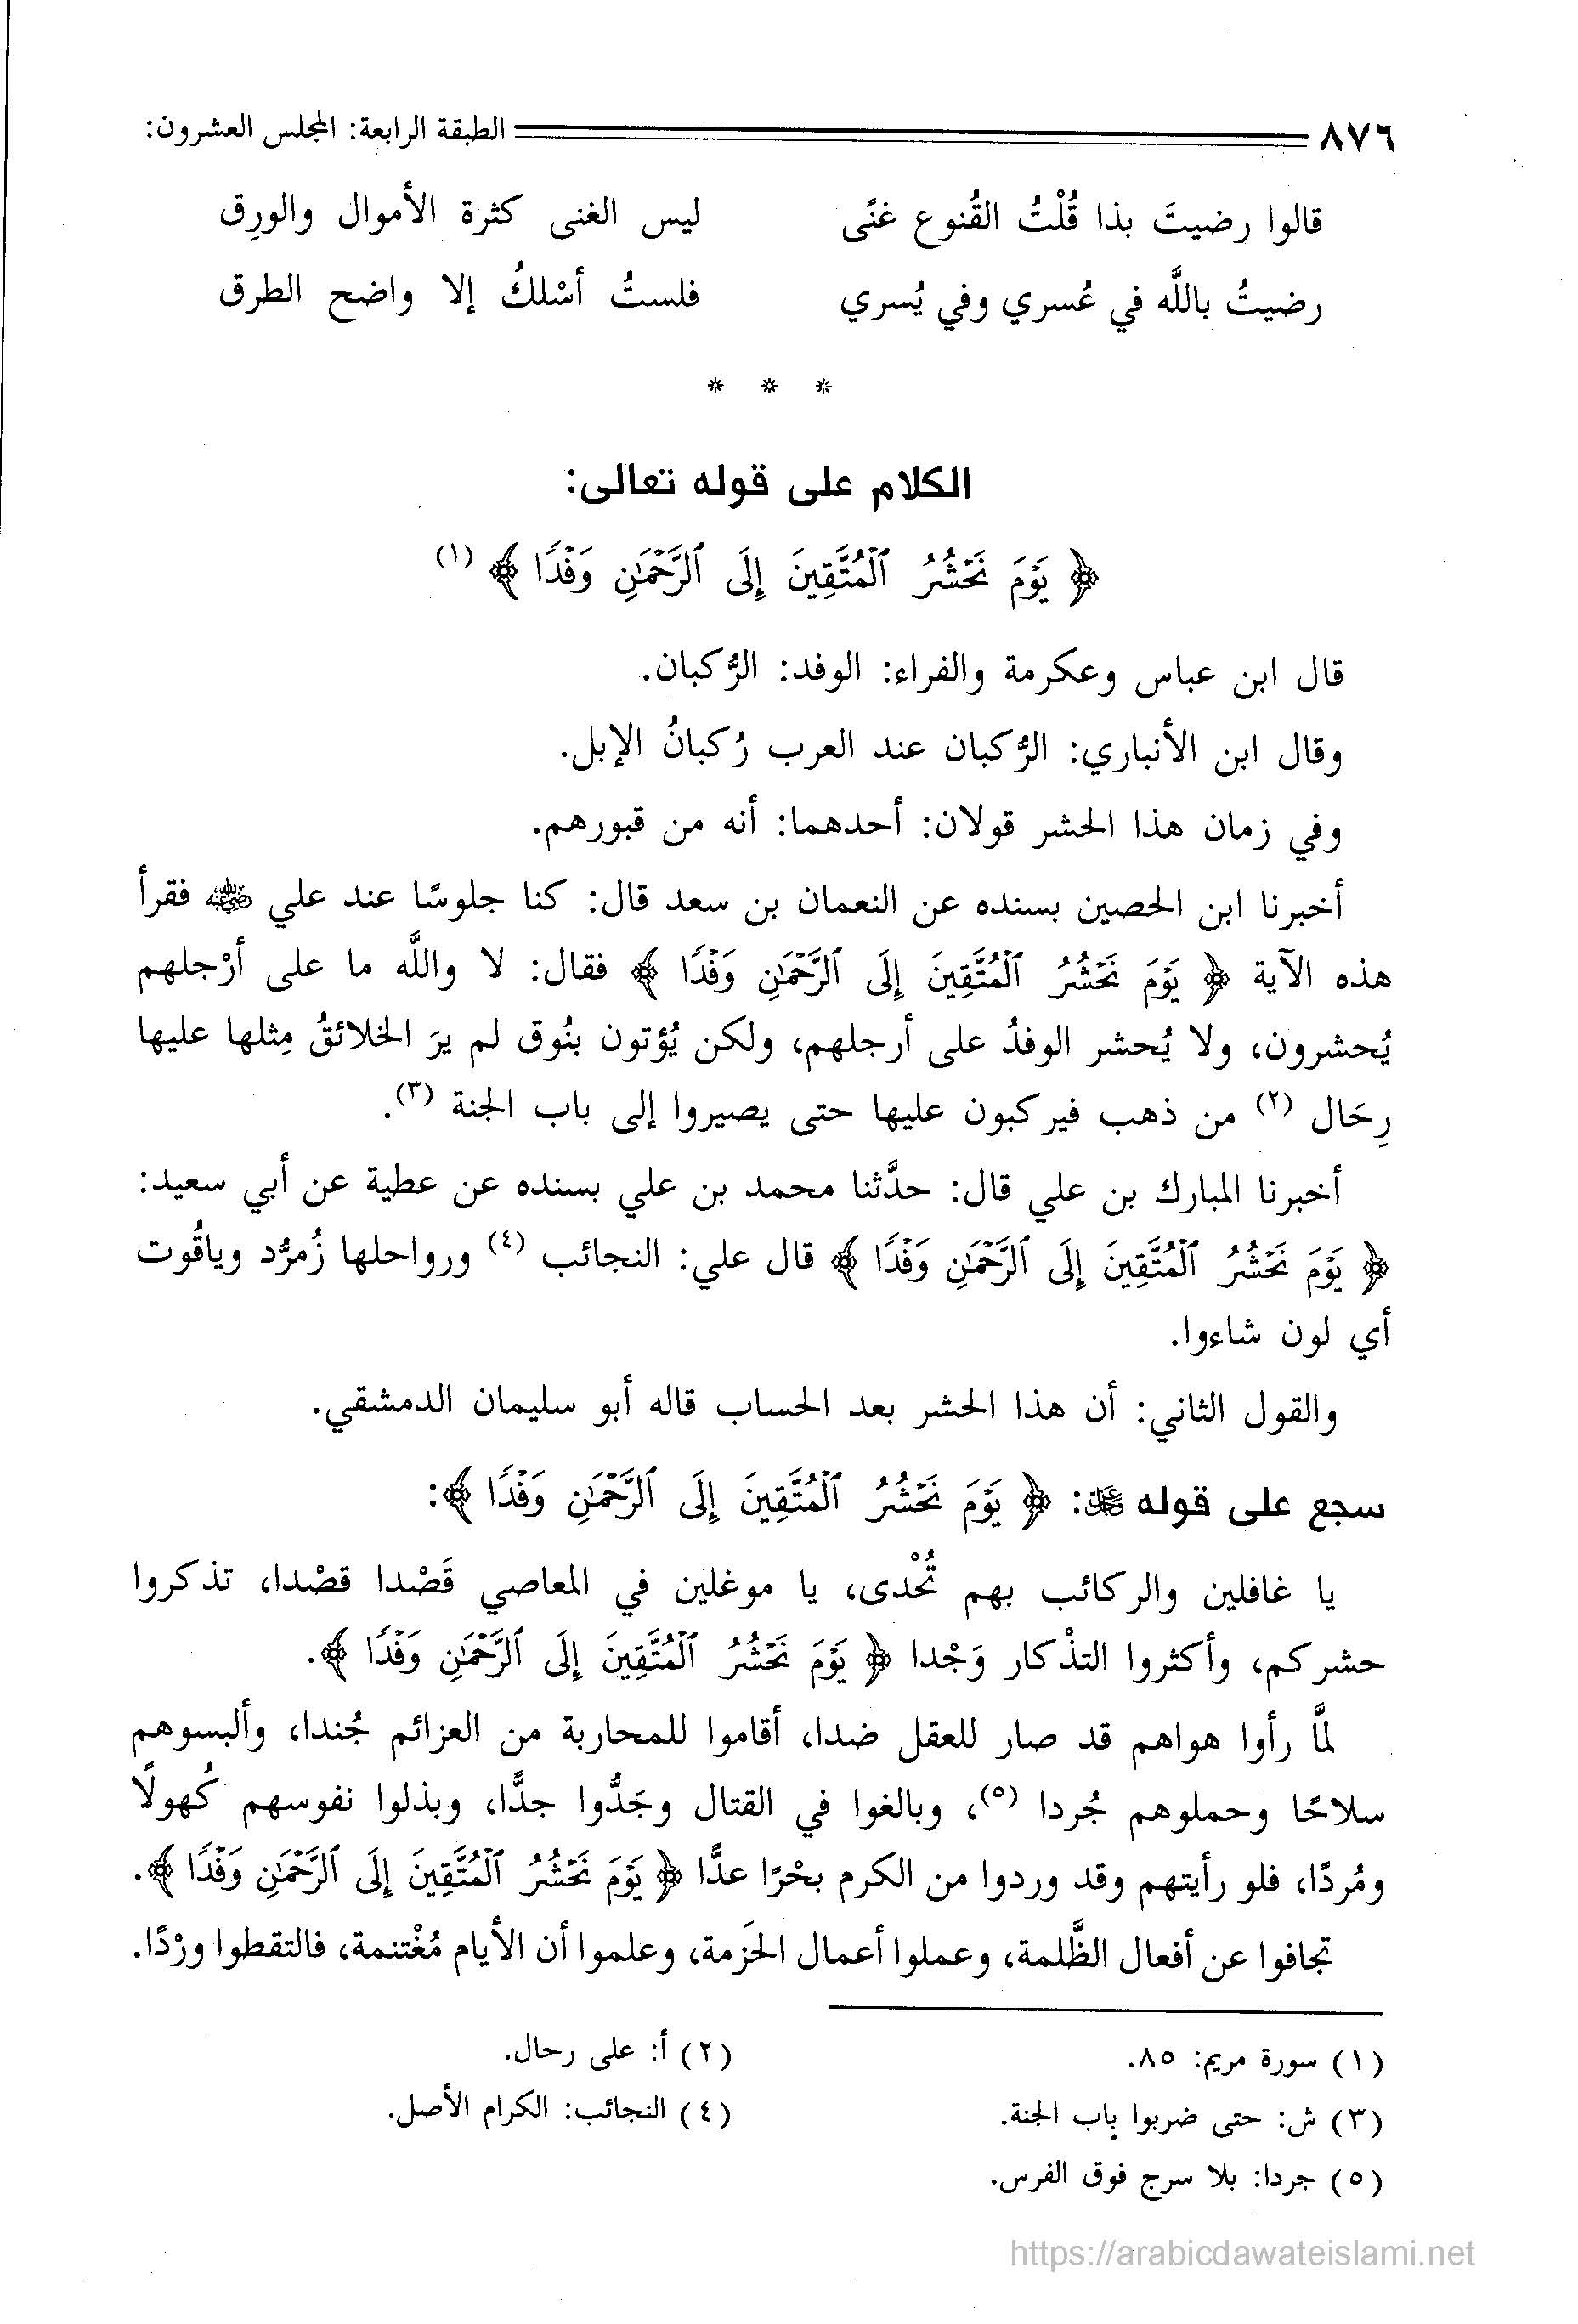 ٨٧٦ الطبقة الرابعة: المجلس العشرون:
قالوا رضيتَ بذا قُلْتُ القُنوع غنًى ليس الغنى كثرة الأموال والورِق
رضيتُ باللَّه في عُسري وفي يُسري فلستُ أسْلكُ إلا واضح الطرق
* * *
الكلام على قوله تعالى:
﴿ يَوْمَ نَحْشُرُ ٱلْمُتَّقِينَ إِلَى ٱلرَّحْمَٰنِ وَفْدًا ﴾ (١)
قال ابن عباس وعكرمة والفراء: الوفد: الرُّكبان.
وقال ابن الأنباري: الرُّكبان عند العرب رُكبانُ الإبل.
وفي زمان هذا الحشر قولان: أحدهما: أنه من قبورهم.
أخبرنا ابن الحصين بسنده عن النعمان بن سعد قال: كنا جلوسًا عند علي رضي الله عنه فقرأ
هذه الآية ﴿ يَوْمَ نَحْشُرُ ٱلْمُتَّقِينَ إِلَى ٱلرَّحْمَٰنِ وَفْدًا ﴾ فقال: لا واللَّه ما على أرْجلهم
يُحشرون، ولا يُحشر الوفدُ على أرجلهم، ولكن يُؤتون بنُوق لم يرَ الخلائقُ مِثلها عليها
رِحَال (٢) من ذهب فيركبون عليها حتى يصيروا إلى باب الجنة (٣).
أخبرنا المبارك بن علي قال: حدَّثنا محمد بن علي بسنده عن عطية عن أبي سعيد:
﴿ يَوْمَ نَحْشُرُ ٱلْمُتَّقِينَ إِلَى ٱلرَّحْمَٰنِ وَفْدًا ﴾ قال علي: النجائب (٤) ورواحلها زُمرُّد وياقُوت
أي لون شاءوا.
والقول الثاني: أن هذا الحشر بعد الحساب قاله أبو سليمان الدمشقي.
سجع على قوله ﷻ: ﴿ يَوْمَ نَحْشُرُ ٱلْمُتَّقِينَ إِلَى ٱلرَّحْمَٰنِ وَفْدًا ﴾:
يا غافلين والركائب بهم تُحْدى، يا موغلين في المعاصي قَصْدا قصْدا، تذكروا
حشركم، وأكثروا التذْكار وَجْدا ﴿ يَوْمَ نَحْشُرُ ٱلْمُتَّقِينَ إِلَى ٱلرَّحْمَٰنِ وَفْدًا ﴾.
لمَّا رأوا هواهم قد صار للعقل ضدا، أقاموا للمحاربة من العزائم جُندا، وألبسوهم
سلاحًا وحملوهم جُردا (٥)، وبالغوا في القتال وجَدُّوا جدًّا، وبذلوا نفوسهم كُهولًا
ومُردًا، فلو رأيتهم وقد وردوا من الكرم بحْرًا عدًّا ﴿ يَوْمَ نَحْشُرُ ٱلْمُتَّقِينَ إِلَى ٱلرَّحْمَٰنِ وَفْدًا ﴾.
تجافوا عن أفعال الظَّلمة، وعملوا أعمال الحَزمة، وعلموا أن الأيام مُغْتنمة، فالتقطوا ورْدًا.
(١) سورة مريم: ٨٥. (٢) أ: على رحال.
(٣) ش: حتى ضربوا باب الجنة. (٤) النجائب: الكرام الأصل.
(٥) جردا: بلا سرج فوق الفرس.
https://arabicdawateislami.net